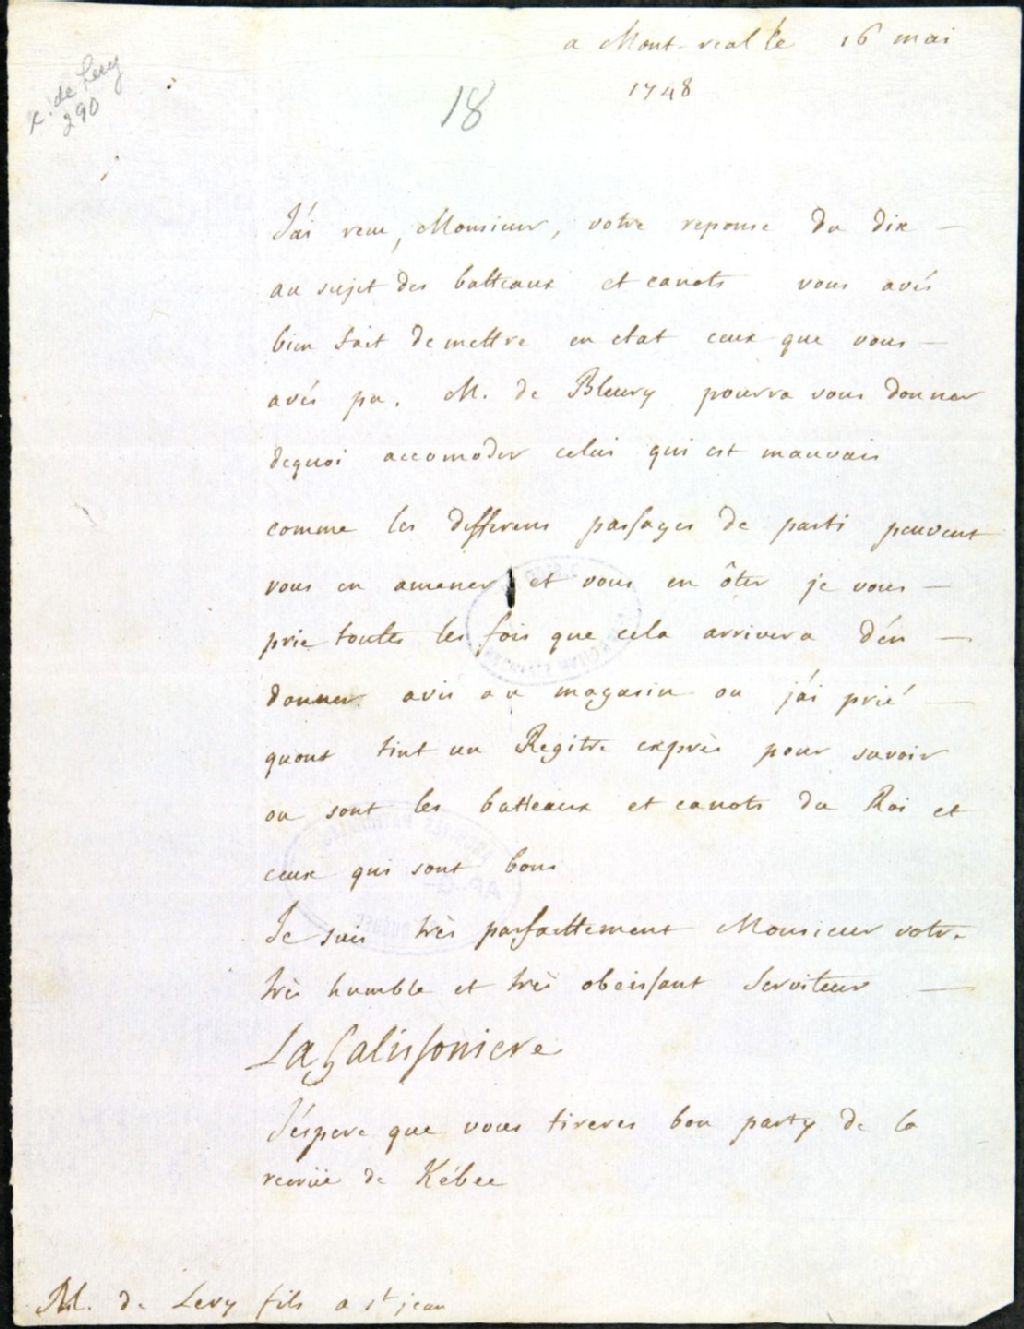 a Mont-real le 16 mai
1748
x. de Lery
290
18
J'ai recu, Monsieur, votre reponse du dix —
au sujet des batteaux et canots vous avés
bien fait de mettre en etat ceux que vous —
avés pu. M. de Bleury pourra vous donner
dequoi accomoder celui qui est mauvais
comme les differens passages de parti peuvent
vous en amener et vous en ôter je vous —
prie toutes les fois que cela arrivera d'en —
donner avis au magasin ou j'ai prié —
quont tint un Regitre exprès pour savoir
ou sont les batteaux et canots du Roi et
ceux qui sont bons
Je suis très parfaittement Monsieur votre
très humble et très obeissant Serviteur —
La Galissoniere
J'espere que vous tireres bon party de la
recrüe de Kébec
M. de Lery fils a St jean